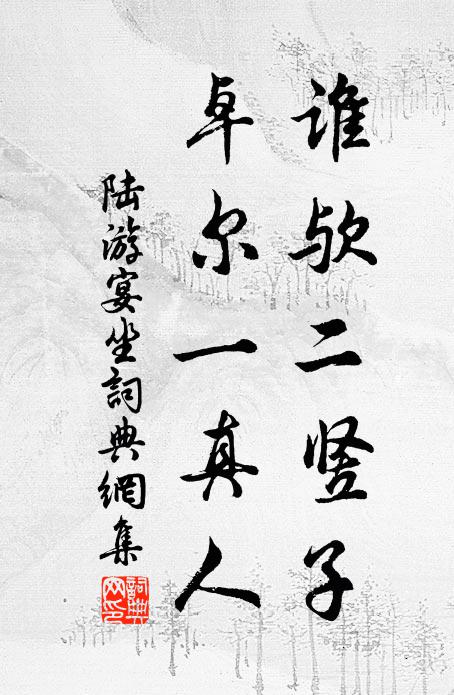 谁欤二竖子
卓尔一真人
陆游宴坐詞典網集
詞典网印